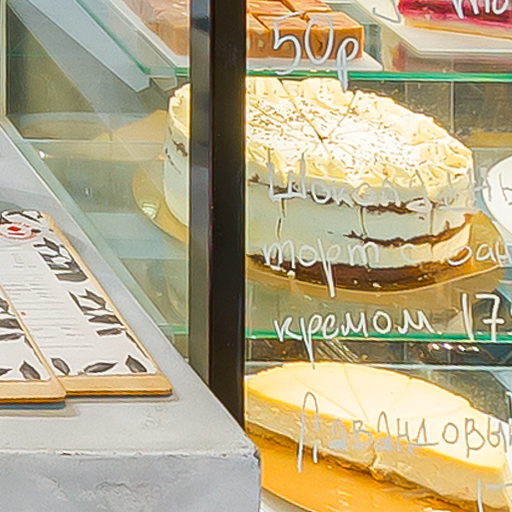 50р
Шоколадны
торт с бан
кремом. 17
Лавандовы